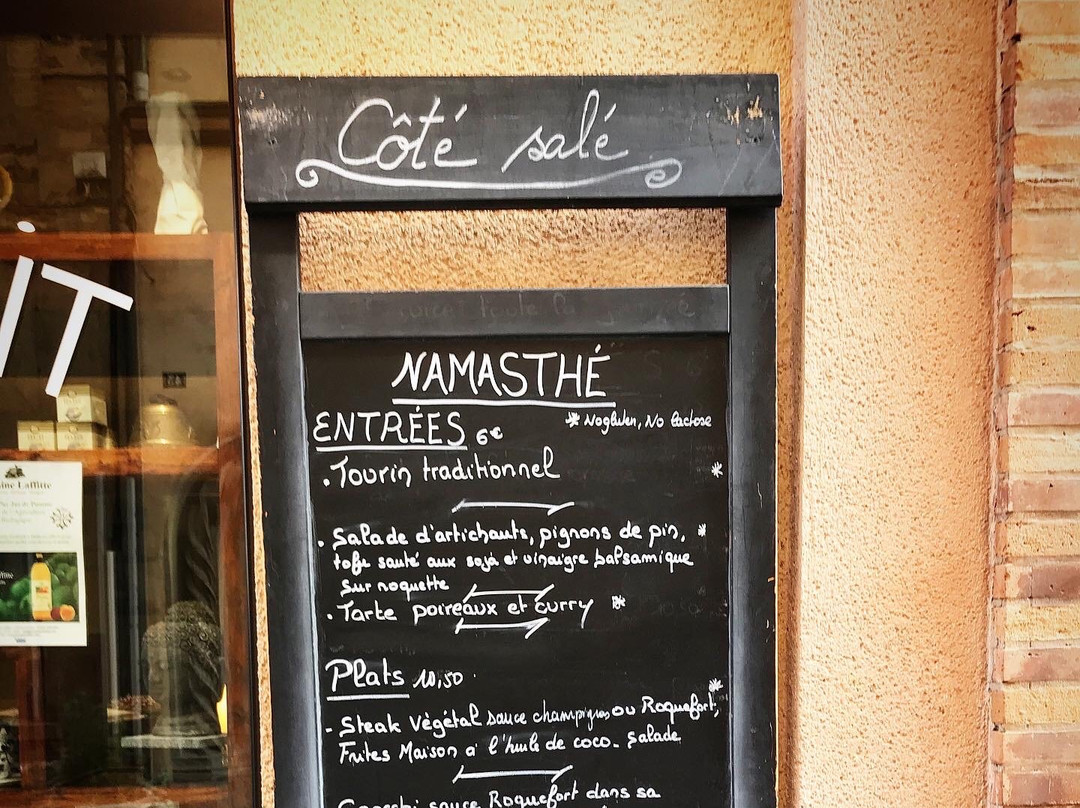 Côté salé
IT
NAMASTHÉ
ENTRÉES 6€
* No gluten, No lactose
• Tourin traditionnel *
• Salade d'artichauts, pignons de pin, *
tofu sauté aux soja et vinaigre balsamique
sur roquette
• Tarte poireaux et curry *
Plats 10,50
- Steak Végétal sauce champignons ou Roquefort, *
Frites Maison à l'huile de coco. Salade
sauce Roquefort dans sa
Laffitte